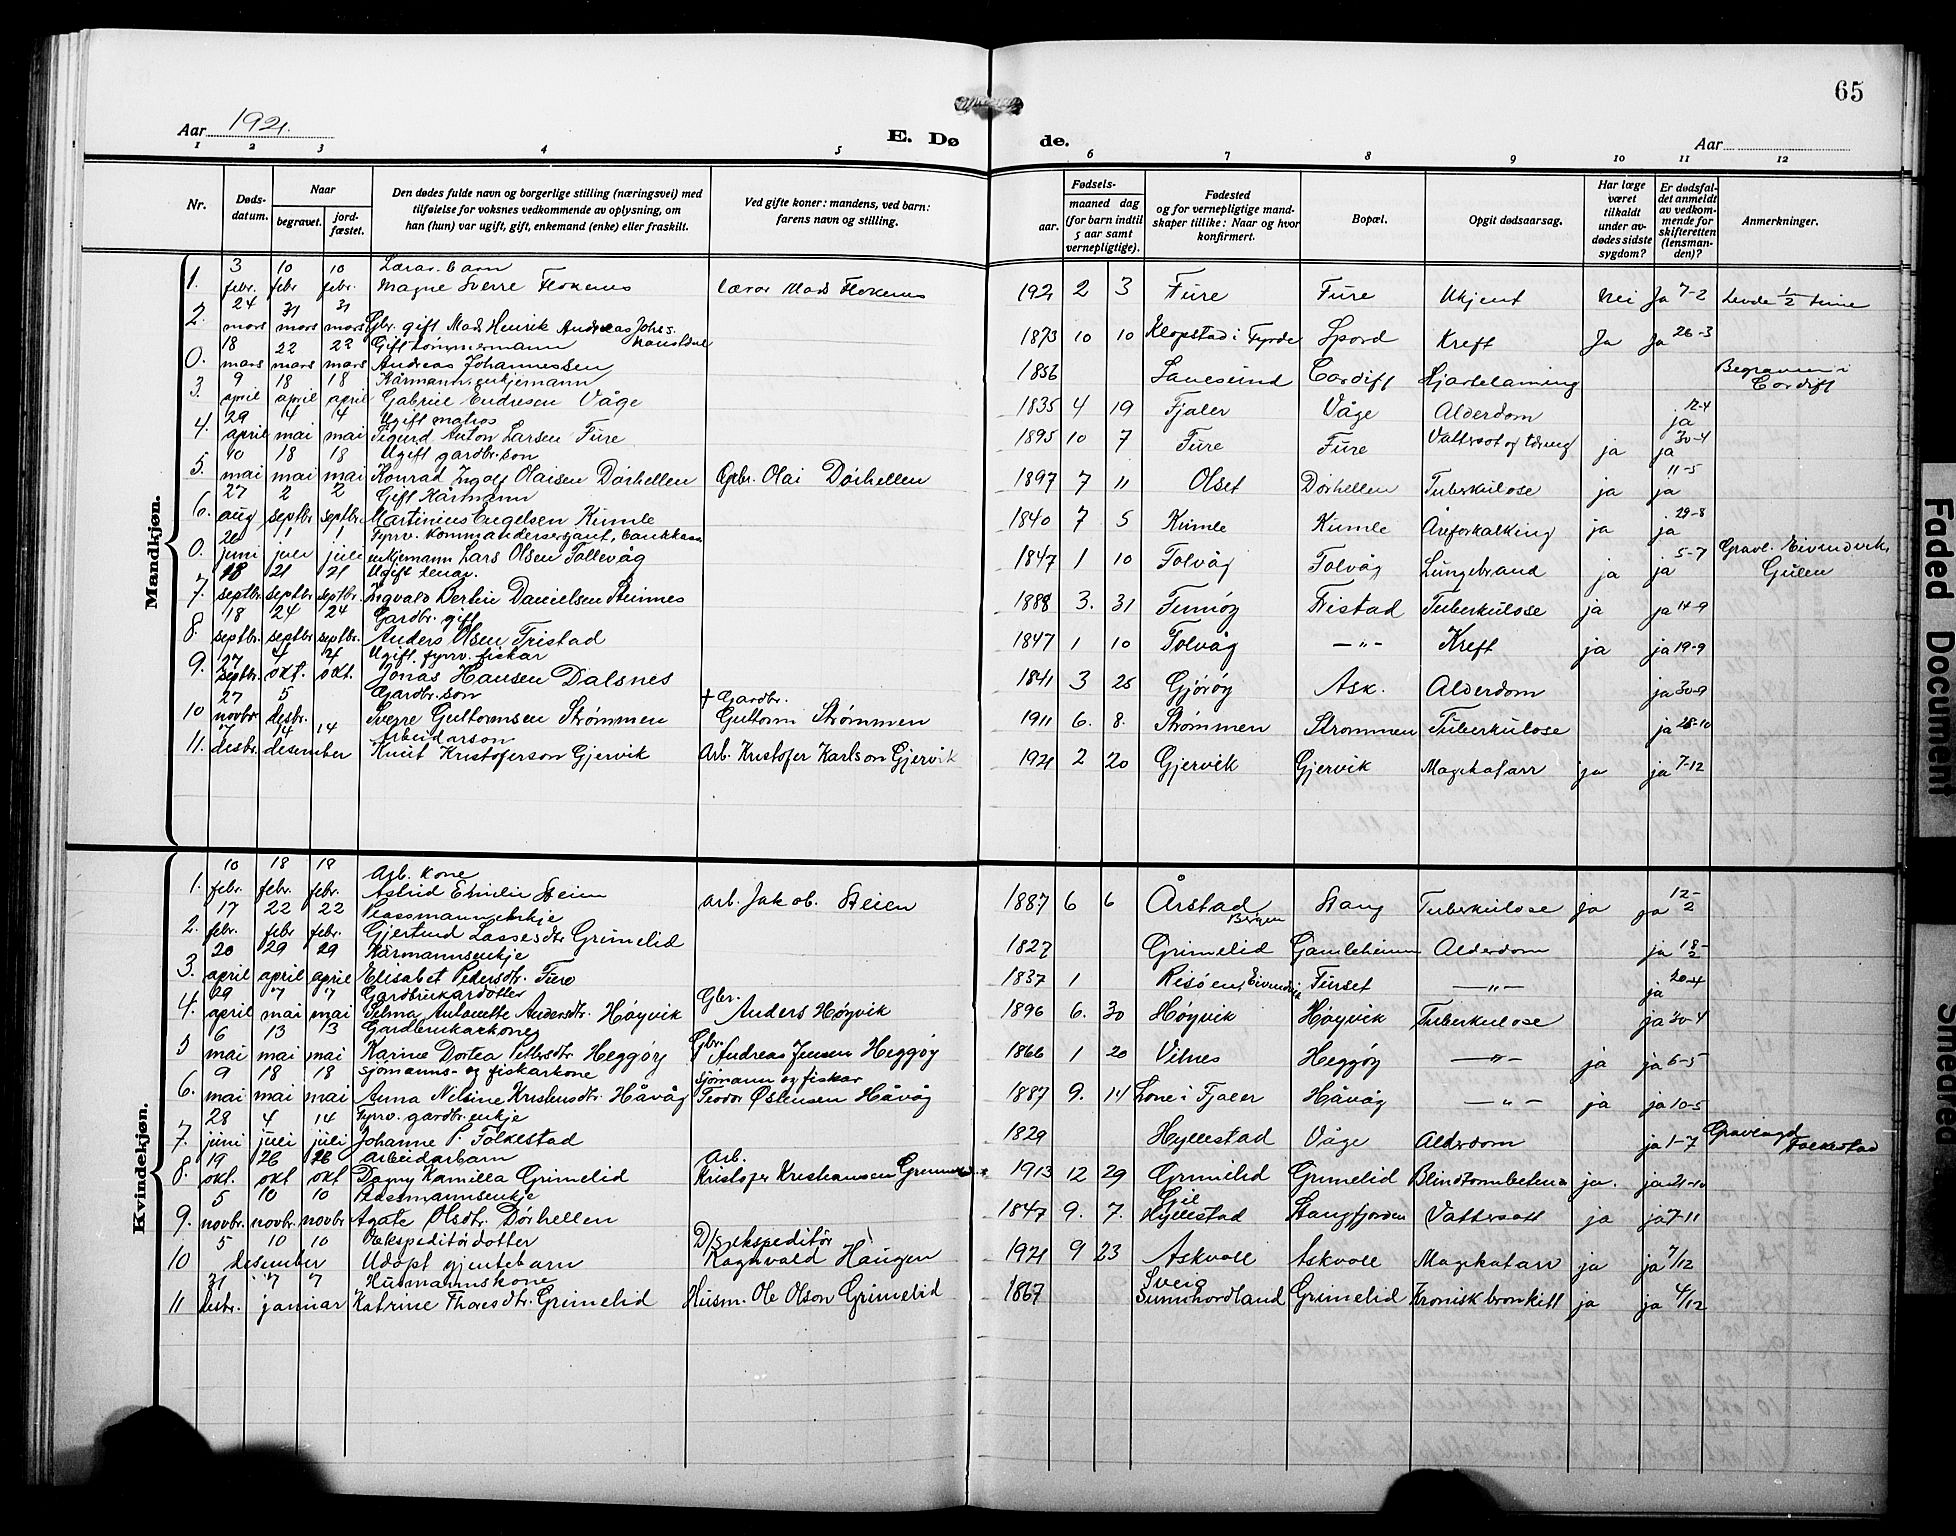 65
Aar 1921.
E. Døde.
Aar
1 2 3 4 5 6 7 8 9 10 11 12
Nr.
Døds-datum.
Naar
begravet.
jord-fæstet.
Den dødes fulde navn og borgerlige stilling (næringsvei) med tilføielse for voksnes vedkommende av oplysning, om han (hun) var ugift, gift, enkemand (enke) eller fraskilt.
Ved gifte koner: mandens, ved barn: farens navn og stilling.
Fødsels-
aar. maaned dag (for barn indtil 5 aar samt vernepligtige).
Fødested og for vernepligtige mandskaper tillike: Naar og hvor konfirmert.
Bopæl.
Opgit dødsaarsag.
Har læge været tilkaldt under avdødes sidste sygdom?
Er dødsfaldet anmeldt av vedkommende for skifteretten (lensmanden)?
Anmerkninger.
Mandkjøn.
1. 3 febr. 10 febr 10 febr. Lærar. barn Magne Sverre Flokenes lærar Mads Flokenes 1921 2 3 Fure Fure Ukjent Nei Ja 7-2 Levde 1/2 time
2. 24 mars 31 mars 31 mars Gbr. gift Mads Henrik Andreas Johs. 1873 10 10 Klopstad i Fyrde Spord Kreft Ja Ja 26-3
0. 18 mars 22 mars 22 mars Gift tømmermann Andreas Johannessen 1856 Lanesund Cardiff Hjartelaming Begraven i Cardiff
3. 9 april 18 april 18 april Kårmann, enkjemann Gabriel Endresen Våge 1835 4 19 Fjaler Våge Alderdom 12-4 ja
4. 29 april 4 mai 4 mai Ugift matros Sigurd Anton Larsen Fure 1895 10 7 Fure Fure Vattersot og tæring ja 30-4 ja
5. 10 mai 18 mai 18 mai Ugift gardbr. son Konrad Ingolf Olaisen Dørhellen Gbr. Olai Dørhellen 1897 7 11 Olset Dørhellen Tuberkulose ja 11-5 ja
6. 27 aug 2 septbr. 2 septbr. Gift Kårmann Martinius Engelsen Kumle 1840 7 5 Kumle Kumle Åreforkalking ja 29-8 ja
0. 26 juni 1 juli 1 juli Fyrrv. Kommandersergant, bankkass. enkjemann Lars Olsen Tollevåg 1847 1 10 Tolvåg Tolvåg Lungebrand ja 5-7 ja Gravl. Eivindvik, Gulen
7. 18 septbr 21 septbr 21 septbr. Ugift tenar. Ingvald Bertin Danielsen Steinnes 1888 3. 31 Fureøy Tristad Tuberkulose ja ja 14-9
8. 18 septbr. 24 septbr. 24 septbr. Gardbr. gift Anders Olsen Tristad 1847 1 10 Tolvåg -"- Kreft ja ja 19-9
9. 27 septbr. 4 okt. 4 okt. Ugift. fyrrv. fiskar Jonas Hansen Dalsnes 1841 3 25 Gjørøy Ask. Alderdom ja 30-9
10 27 novbr 5 desbr. Gardbr. son Sverre Guttormsen Strømmen + Gardbr. Guttorm Strømmen 1911 6. 8. Strømmen Strømmen Tuberkulose ja 28-10
11. 7 desbr. 14 desember 14 Arbeidarson Knut Kristoferson Gjervik Arb. Kristofer Karlson Gjervik 1921 2 20 Gjervik Gjervik Magekatarr ja ja 7-12
Kvindekjøn.
1. 10 febr. 18 febr. 19 febr. Arb. kone Astrid Emilie Steien arb. Jakob. Steien 1887 6 6 Årstad Bergen Stang Tuberkulose Ja ja 12-2
2. 17 febr. 22 febr 22 febr. Plassmannenkje Gjertrud Lassesdtr. Grimelid 1827 Grimelid Gamleheimen Alderdom ja 18-2
3. 20 april 29 april 29 april Kårmannsenkje Elisabet Petersdtr. Fure 1837 1 Risøen, Eivindvik Furset -"- 20-4 ja
4. 29 april 7 mai 7 mai Gardbrukardotter Selma Antonette Andersdtr. Høyvik Gbr. Anders Høyvik 1896 6. 30 Høyvik Høyvik Tuberkulose ja 30-4
5 6 mai 13 mai 13 mai Gardbrukarkone Karine Dortea Pettersdtr. Heggøy Gbr. Andreas Jensen Heggøy 1866 1 20 Vilnes Heggøy -"- ja ja 6-5
6. 9 mai 18 mai 18 mai Sjømanns- og fiskarkone Anna Nilsine Kristensdtr. Håvåg sjømann og fiskar Teodor Østensen Håvåg 1887 9. 14 Lone i Fjaler Håvåg -"- ja ja 10-5
7. 28 juni 4 juli 14 juli Fyrrv. gardbr. enkje Johanne P. Folkestad 1829 Hyllestad Våge Alderdom ja 1-7 Gravlagd Folkestad
8. 19 okt. 26 okt 26 okt Arbeidarbarn Dagny Kamilla Grimelid Arb. Kristofer Kristiansen Grimelid 1913 12 29 Grimelid Grimelid Blindtarmbetena ja. ja 21-10
9. 5 novbr. 10 novbr. 10 novbr Plassmannsenkje Agate Olsdtr. Dørhellen 1847 9. 7. Gil Hyllestad Stangfjorden Vattersott ja ja 7-11
10 5 10 10 desember Ekspeditørdotter Udøpt gjentebarn D/s ekspeditør Ragnvald Haugen 1921 9 23 Askvoll Askvoll Magekatarr ja ja 7/12
11 31 desbr. 7 januar 7 Husmannskone Katrine Thoresdtr. Grimelid Husm. Ole Olson Grimelid 1867 Sveio Sunnhordland Grimelid Kronisk bronkitt ja ja 4/12
Faded Document
Smeared